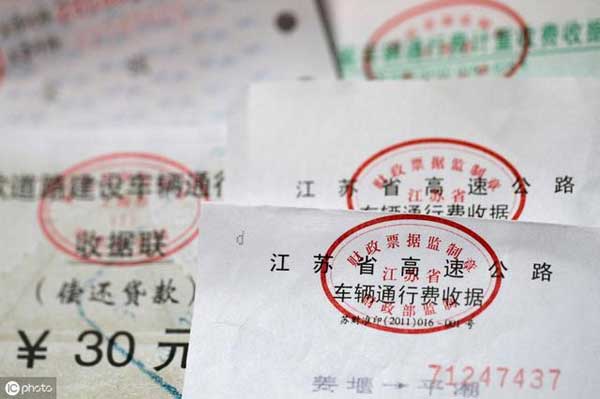 车辆通行费计重收费收据
江苏省高速公路
财政票据监制章
江苏省
车辆通行费收据
道路建设车辆通行
收据联
(偿还贷款)
¥30元
d
江苏省高速公路
财政票据监制章
江苏省
车辆通行费收据
财政部监制
苏财准印(2011)016-001号
71247437
姜堰→平潮
iC photo